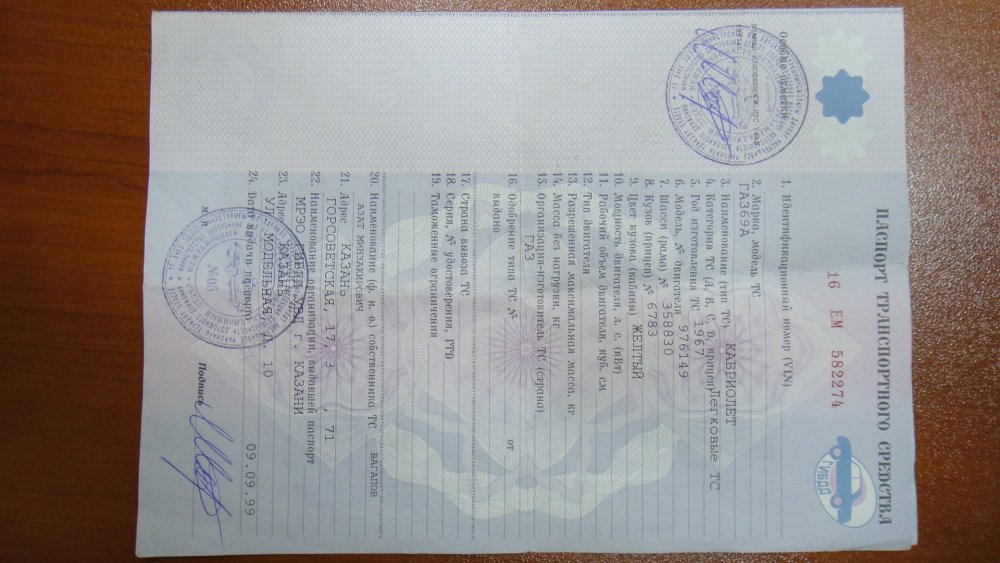 ПАСПОРТ ТРАНСПОРТНОГО СРЕДСТВА
16 ЕМ 582274
ГИБДД
Особые отметки
1. Идентификационный номер (VIN)
2. Марка, модель ТС
ГАЗ69А
3. Наименование (тип ТС) КАБРИОЛЕТ
4. Категория ТС (A, B, C, D, прицеп) Легковые ТС
5. Год изготовления ТС 1967
6. Модель, № двигателя 976149
7. Шасси (рама) № 358830
8. Кузов (прицеп) № 6783
9. Цвет кузова (кабины) ЖЕЛТЫЙ
10. Мощность двигателя, л. с. (кВт)
11. Рабочий объем двигателя, куб. см
12. Тип двигателя
13. Разрешенная максимальная масса, кг
14. Масса без нагрузки, кг
15. Организация-изготовитель ТС (страна)
ГАЗ
16. Одобрение типа ТС № от
выдано
17. Страна вывоза ТС
18. Серия, № удостоверения, ГТД
19. Таможенные ограничения
20. Наименование (ф. и. о.) собственника ТС ВАГАПОВ
АЗАТ МИНЗАКИРОВИЧ
21. Адрес КАЗАНЬ
ГОРСОВЕТСКАЯ, 17, 3 , 71
22. Наименование организации, выдавшей паспорт
МРЭО ГИБДД МВД Г. КАЗАНИ
23. Адрес
КАЗАНЬ
УЛ. МОДЕЛЬНАЯ, 10
24. Дата выдачи паспорта 09.09.99
М. П. Подпись